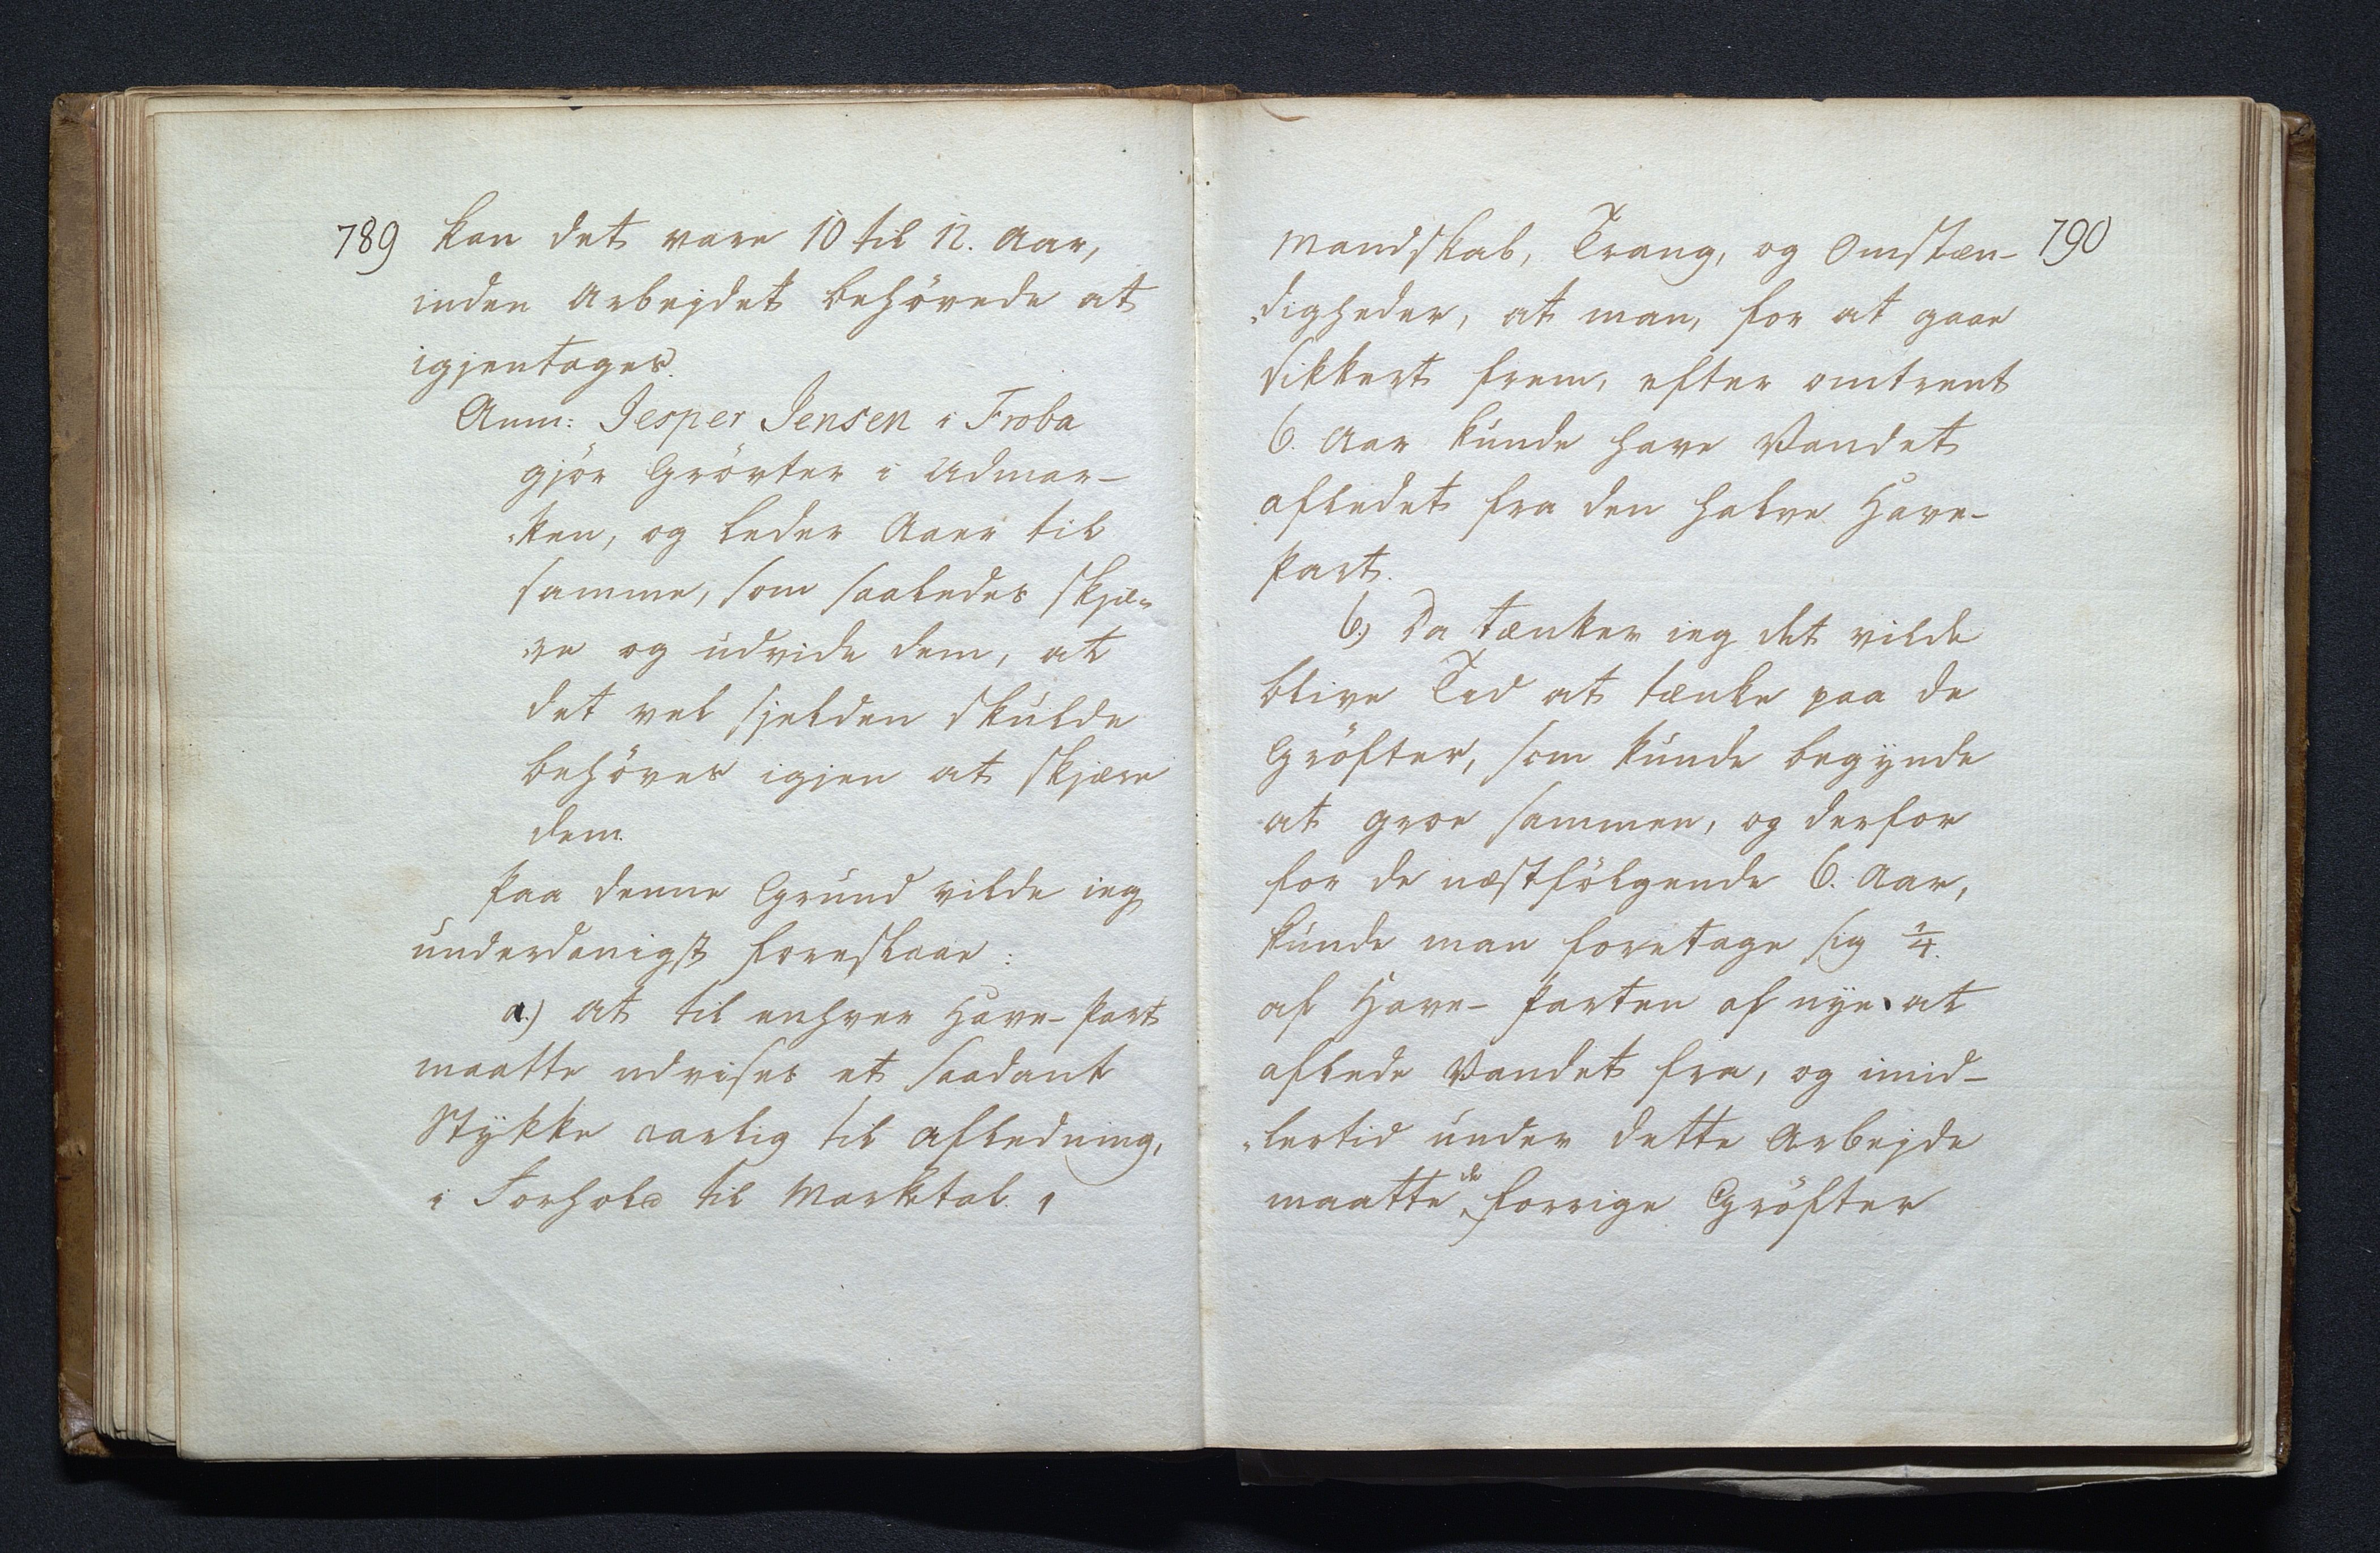 789 kan det vare 10 til 12. Aar,
inden Arbejdet behövede at
igjentages.
Anm: Jesper Jensen i Froba
gjör Grövter i Udmar-
ken, og leder Aaer til
samme, som saaledes skjæ-
re og udvide dem, at
det vel sjelden skulde
behöves igjen at skjære
dem.
Paa denne Grund vilde ieg
underdanigst foreslaae:
a.) at til enhver Have-Part
maatte udvises et saadant
Stykke aarlig til Afledning,
i Forhold til Marketal.
Mandskab, Trang, og Omstæn- 790
digheder, at man, for at gaae
sikkert frem, efter omtrent
6. Aar kunde have Vandet
afledet fra den halve Have-
Part.
b.) Da tænker ieg det vilde
blive Tid at tænke paa de
Gröfter, som kunde begynde
at groe sammen, og derfor
for de næstfölgende 6. Aar,
kunde man foretage sig 1/4.
af Have-Parten af nye at
aflede Vandet fra, og imid-
lertid under dette Arbejde
maatte de forrige Gröfter